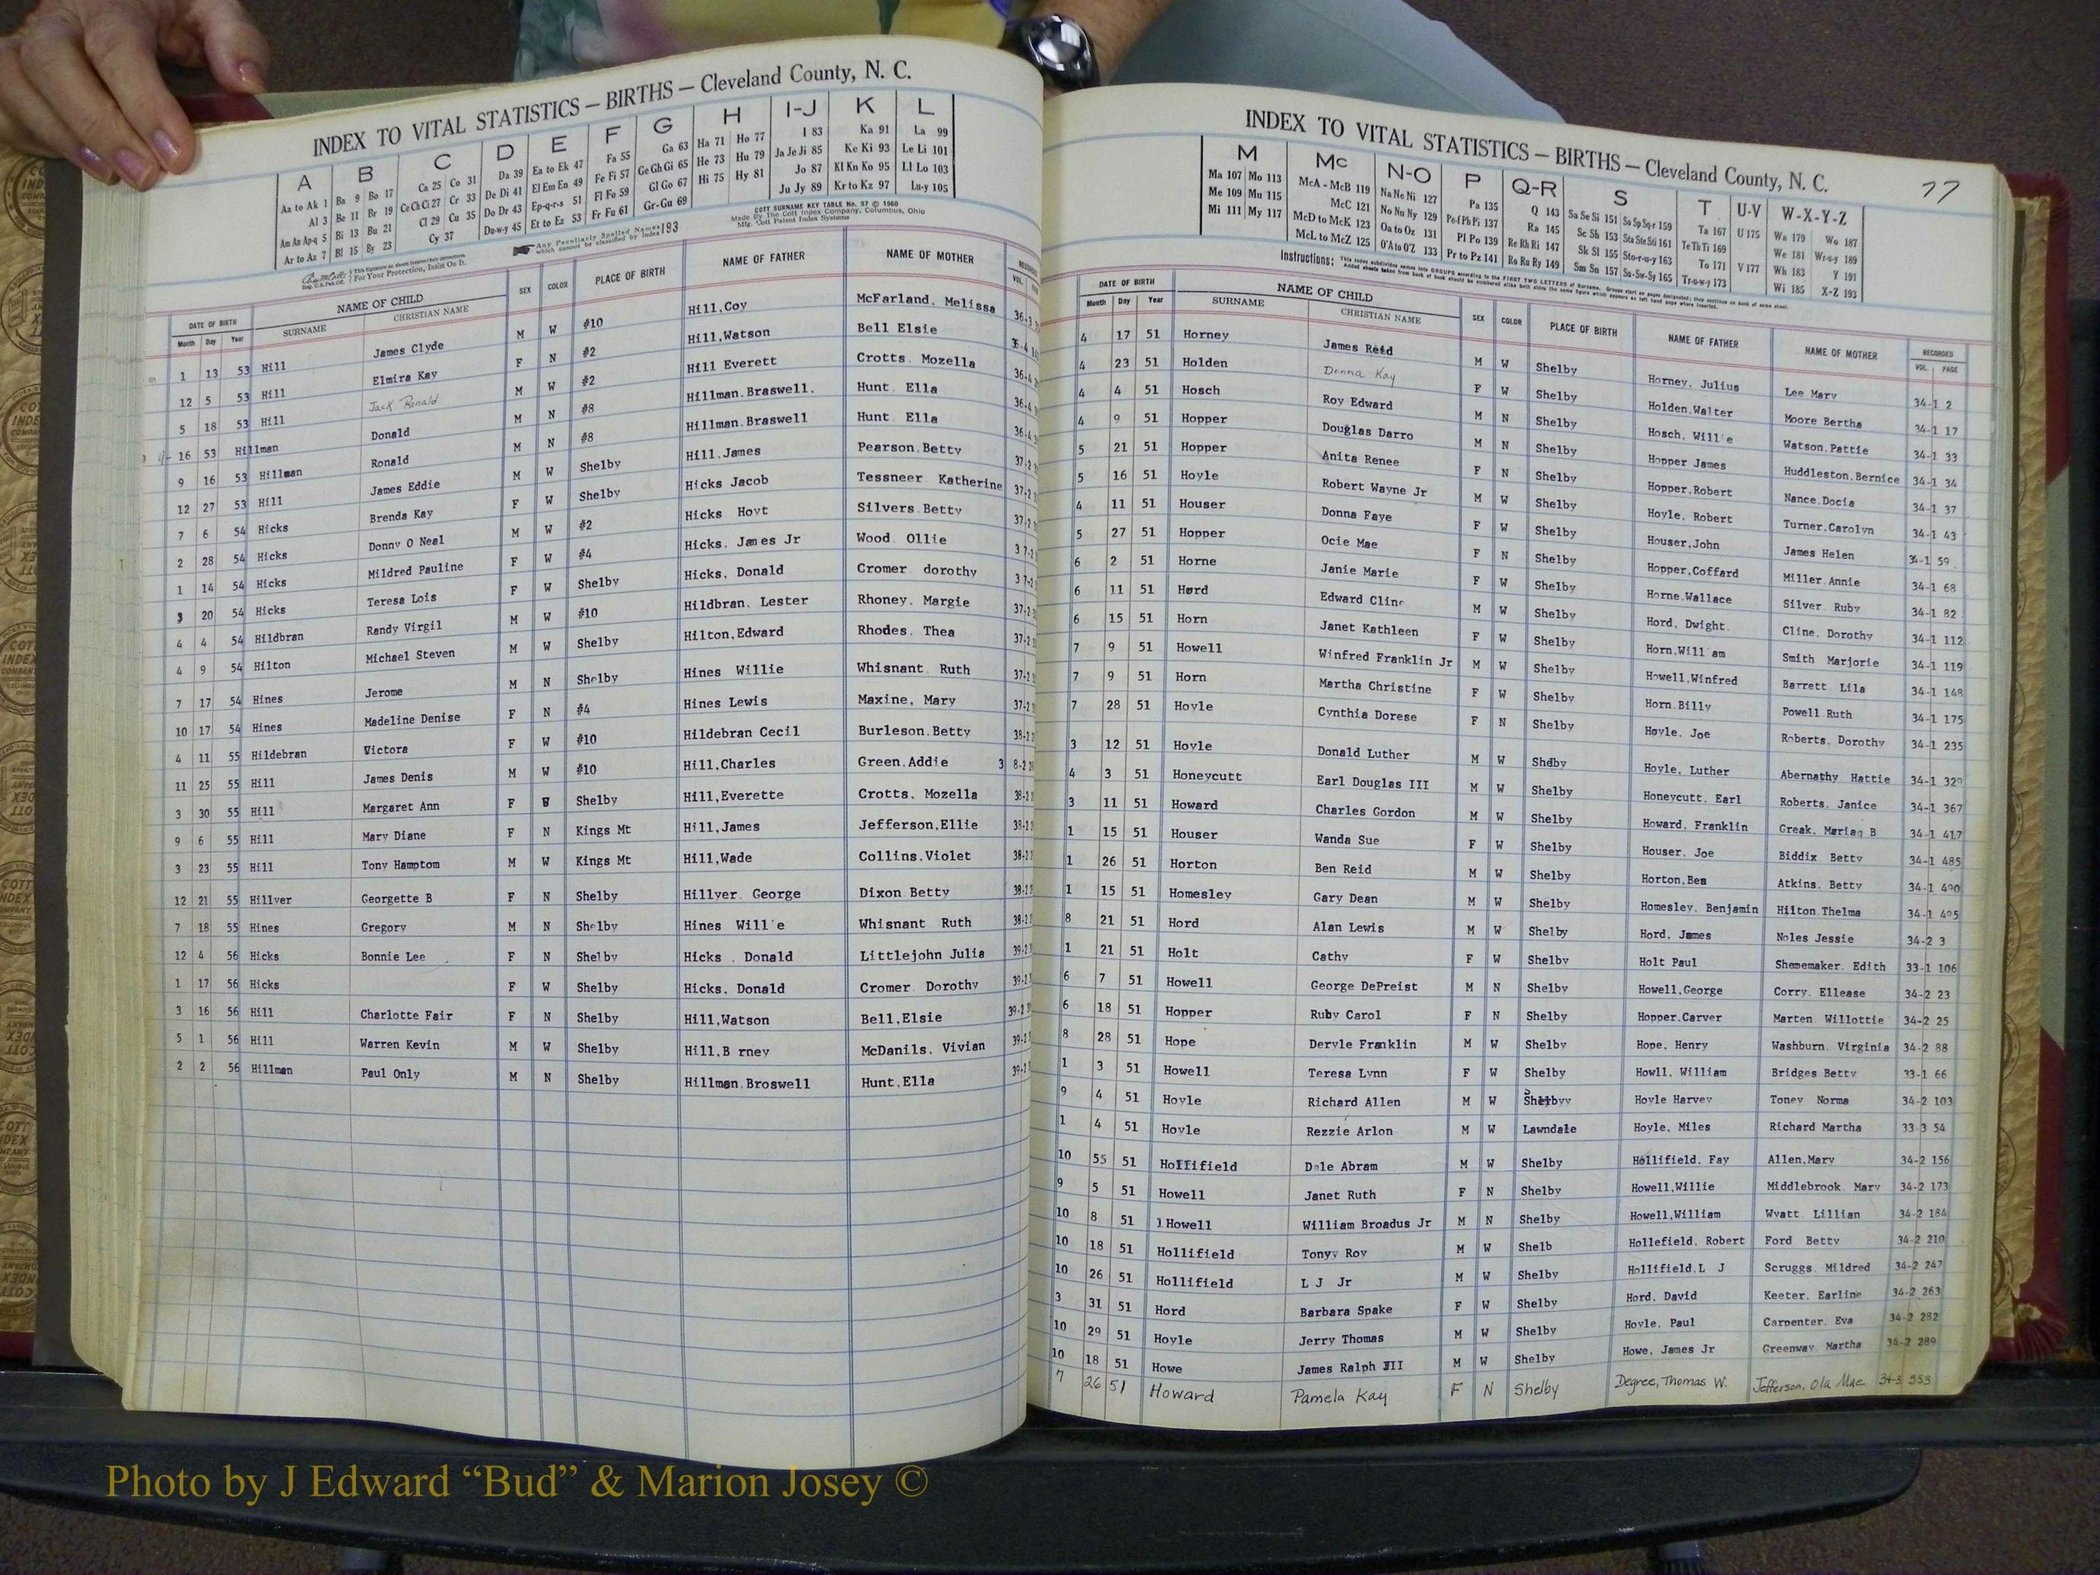 INDEX TO VITAL STATISTICS — BIRTHS — Cleveland County, N. C.
A B C D E F G H I-J K L
Aa to Ak 1 Ba 9 Bo 17 Ca 25 Co 31 Da 39 Ea to Ek 47 Fa 55 Ga 63 Ha 71 Ho 77 I 83 Ka 91 La 99
Al 3 Be 11 Br 19 Ce Ch Ci 27 Cr 33 De Di 41 El Em En 49 Fe Fi 57 Ge Gh Gi 65 He 73 Hu 79 Ja Je Ji 85 Ke Ki 93 Le Li 101
Am An Ap-q 5 Bi 13 Bu 21 Cl 29 Cu 35 Do Dr 43 Ep-q-r-s 51 Fl Fo 59 Gl Go 67 Hi 75 Hy 81 Jo 87 Kl Kn Ko 95 Ll Lo 103
Ar to Az 7 Bl 15 By 23 Cy 37 Du-w-y 45 Et to Ez 53 Fr Fu 61 Gr-Gu 69 Ju Jy 89 Kr to Kz 97 Lu-y 105
COTT SURNAME KEY TABLE No. 97 © 1960
Made By The Cott Index Company, Columbus, Ohio
Mfg. Cott Patent Index Systems
Any Peculiarly Spelled Names which cannot be classified by Index 193
For Your Protection, Insist On It.
DATE OF BIRTH NAME OF CHILD SEX COLOR PLACE OF BIRTH NAME OF FATHER NAME OF MOTHER
Month Day Year SURNAME CHRISTIAN NAME VOL.
1 13 53 Hill James Clyde M W #10 Hill,Coy McFarland. Melissa 36-3
12 5 53 Hill Elmira Kay F N #2 Hill,Watson Bell Elsie 36-4
5 18 53 Hill Jack Ronald M W #2 Hill Everett Crotts. Mozella 36-4
16 53 Hillman Donald M N #8 Hillman.Braswell. Hunt. Ella 36-4
9 16 53 Hillman Ronald M N #8 Hillman.Braswell Hunt. Ella 36-4
12 27 53 Hill James Eddie M W Shelby Hill.James Pearson.Betty 37-2
7 6 54 Hicks Brenda Kay F W Shelby Hicks Jacob Tessneer Katherine 37-2
2 28 54 Hicks Donny O Neal M W #2 Hicks Hoyt Silvers.Betty 37-2
1 14 54 Hicks Mildred Pauline F W #4 Hicks. James Jr Wood. Ollie 37-2
3 20 54 Hicks Teresa Lois F W Shelby Hicks. Donald Cromer dorothy 37-2
4 4 54 Hildbran Randy Virgil M W #10 Hildbran. Lester Rhoney. Margie 37-2
4 9 54 Hilton Michael Steven M W Shelby Hilton,Edward Rhodes. Thea 37-2
7 17 54 Hines Jerome M N Shelby Hines Willie Whisnant. Ruth 37-2
10 17 54 Hines Madeline Denise F N #4 Hines Lewis Maxine, Mary 37-2
4 11 55 Hildebran Victora F W #10 Hildebran Cecil Burleson.Betty 38-2
11 25 55 Hill James Denis M W #10 Hill,Charles Green.Addie 38-2
3 30 55 Hill Margaret Ann F W Shelby Hill,Everette Crotts. Mozella 38-2
9 6 55 Hill Mary Diane F N Kings Mt Hill,James Jefferson,Ellie 38-2
3 23 55 Hill Tony Hamptom M W Kings Mt Hill,Wade Collins.Violet 38-2
12 21 55 Hillyer Georgette B F N Shelby Hillyer. George Dixon.Betty 38-2
7 18 55 Hines Gregory M N Shelby Hines Will e Whisnant Ruth 38-2
12 4 56 Hicks Bonnie Lee F N Shelby Hicks . Donald Littlejohn Julia 39-2
1 17 56 Hicks F W Shelby Hicks. Donald Cromer Dorothy 39-2
3 16 56 Hill Charlotte Fair F N Shelby Hill,Watson Bell,Elsie 39-2
5 1 56 Hill Warren Kevin M W Shelby Hill,B rney McDanils. Vivian 39-2
2 2 56 Hillman Paul Only M N Shelby Hillman.Broswell Hunt.Ella 39-2
INDEX TO VITAL STATISTICS — BIRTHS — Cleveland County, N. C. 77
M Mc N-O P Q-R S T U-V W-X-Y-Z
Ma 107 Mo 113 McA - McB 119 Na Ne Ni 127 Pa 135 Q 143 Sa Se Si 151 So Sp Sq-r 159 Ta 167 U 175 Wa 179 Wo 187
Me 109 Mu 115 McC 121 No Nu Ny 129 Pe-f Ph Pi 137 Ra 145 Sc Sh 153 Sta Ste Sti 161 Te Th Ti 169 We 181 Wr-u-y 189
Mi 111 My 117 McD to McK 123 Oa to Oz 131 Pl Po 139 Re Rh Ri 147 Sk Sl 155 Sto-r-u-y 163 To 171 V 177 Wh 183 Y 191
McL to McZ 125 O'A to O'Z 133 Pr to Pz 141 Ro Ru Ry 149 Sm Sn 157 Su-Sw-Sy 165 Tr-u-w-y 173 Wi 185 X-Z 193
Instructions:
DATE OF BIRTH NAME OF CHILD SEX COLOR PLACE OF BIRTH NAME OF FATHER NAME OF MOTHER RECORDED
Month Day Year SURNAME CHRISTIAN NAME VOL. PAGE
4 17 51 Horney James Reid M W Shelby Horney. Julius Lee Mary 34-1 2
4 23 51 Holden Donna Kay F W Shelby Holden.Walter Moore Bertha 34-1 17
4 4 51 Hosch Roy Edward M N Shelby Hosch. Will e Watson.Pattie 34-1 33
4 9 51 Hopper Douglas Darro M N Shelby Hopper James Huddleston.Bernice 34-1 34
5 21 51 Hopper Anita Renee F N Shelby Hopper.Robert Nance.Docia 34-1 37
5 16 51 Hoyle Robert Wayne Jr M W Shelby Hoyle. Robert Turner.Carolyn 34-1 43
4 11 51 Houser Donna Faye F W Shelby Houser.John James Helen 34-1 59
5 27 51 Hopper Ocie Mae F N Shelby Hopper.Coffard Miller.Annie 34-1 68
6 2 51 Horne Janie Marie F W Shelby Horne.Wallace Silver. Ruby 34-1 82
6 11 51 Hord Edward Cline M W Shelby Hord, Dwight. Cline. Dorothy 34-1 112
6 15 51 Horn Janet Kathleen F W Shelby Horn.Will am Smith Marjorie 34-1 119
7 9 51 Howell Winfred Franklin Jr M W Shelby Howell.Winfred Barrett Lila 34-1 148
7 9 51 Horn Martha Christine F W Shelby Horn.Billy Powell Ruth 34-1 175
7 28 51 Hoyle Cynthia Dorese F N Shelby Hoyle. Joe Roberts. Dorothy 34-1 235
3 12 51 Hoyle Donald Luther M W Shelby Hoyle. Luther Abernathy Hattie 34-1 329
4 3 51 Honeycutt Earl Douglas III M W Shelby Honeycutt. Earl Roberts. Janice 34-1 367
3 11 51 Howard Charles Gordon M W Shelby Howard. Franklin Greak. Marian B 34-1 417
1 15 51 Houser Wanda Sue F W Shelby Houser. Joe Biddix Betty 34-1 485
1 26 51 Horton Ben Reid M W Shelby Horton,Ben Atkins. Betty 34-1 490
1 15 51 Homesley Gary Dean M W Shelby Homesley. Benjamin Hilton.Thelma 34-1 495
8 21 51 Hord Alan Lewis M W Shelby Hord. James Noles Jessie 34-2 3
1 21 51 Holt Cathy F W Shelby Holt Paul Shememaker. Edith 33-1 106
6 7 51 Howell George DePreist M N Shelby Howell.George Corry. Ellease 34-2 23
6 18 51 Hopper Ruby Carol F N Shelby Hopper.Carver Marten Willottie 34-2 25
8 28 51 Hope Deryle Franklin M W Shelby Hope. Henry Washburn. Virginia 34-2 88
1 3 51 Howell Teresa Lynn F W Shelby Howll. William Bridges Betty 33-1 66
9 4 51 Hoyle Richard Allen M W Hoyle Harvey Toney Norma 34-2 103
1 4 51 Hoyle Rezzie Arlon M W Lawndale Hoyle. Miles Richard Martha 33 3 54
10 55 51 Hollifield Dale Abram M W Shelby Hollifield. Fay Allen.Mary 34-2 156
9 5 51 Howell Janet Ruth F N Shelby Howell.Willie Middlebrook. Mary 34-2 173
10 8 51 Howell William Broadus Jr M N Shelby Howell,William Wyatt Lillian 34-2 184
10 18 51 Hollifield Tonyy Roy M W Shelb Hollefield. Robert Ford Betty 34-2 210
10 26 51 Hollifield L J Jr M W Shelby Hollifield.L J Scruggs. Mildred 34-2 247
3 31 51 Hord Barbara Spake F W Shelby Hord. David Keeter. Earline 34-2 263
10 29 51 Hoyle Jerry Thomas M W Shelby Hoyle. Paul Carpenter. Eva 34-2 282
10 18 51 Howe James Ralph III M W Shelby Howe. James Jr Greenway. Martha 34-2 289
7 26 51 Howard Pamela Kay F N Shelby Degree, Thomas W. Jefferson, Ola Mae 34-3 553
Photo by J Edward “Bud” & Marion Josey ©